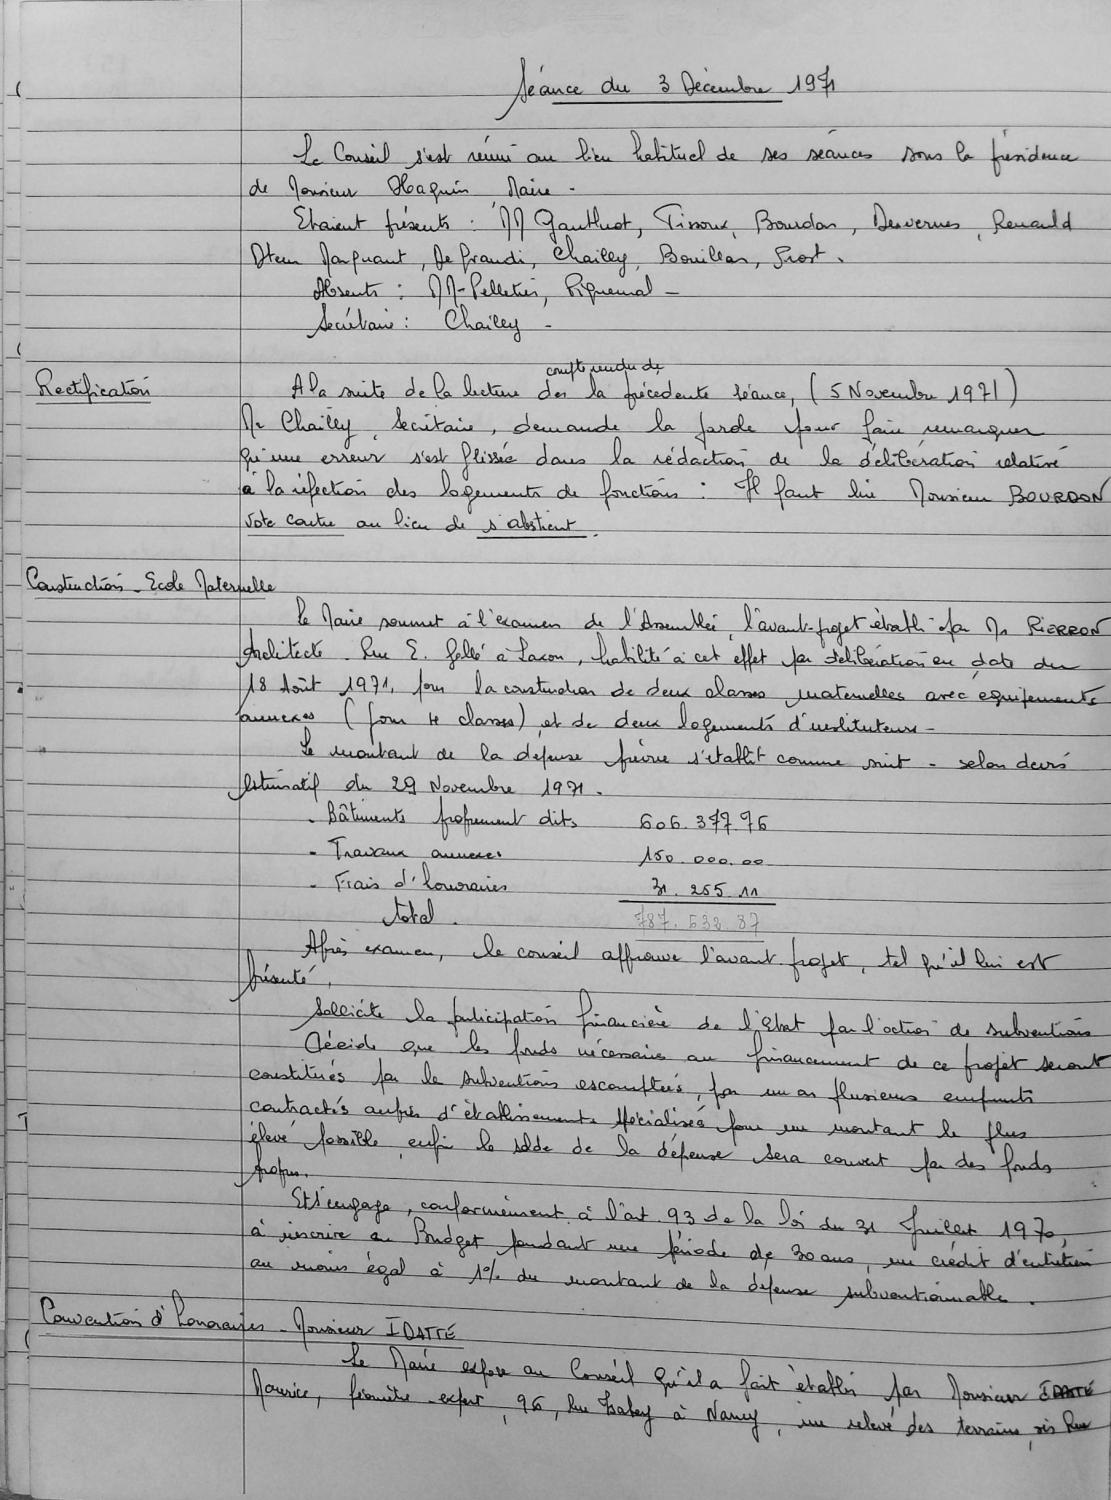 Séance du 3 Décembre 1971
Le Conseil s'est réuni au lieu habituel de ses séances sous la présidence
de Monsieur Haquin, Maire -
Etaient présents : MM Gauthrot, Tissoux, Bourdon, Desvernes, Renauld
Marquant, De Grandi, Chailly, Bouillon, Prost.
Absents : MM-Pelletier, Piquemal -
Secrétaire : Chailly -
compte rendu de
Rectification
A la suite de la lecture des la précédente séance, (5 Novembre 1971)
Mr Chailly, Secrétaire, demande la parole pour faire remarquer
qu'une erreur s'est glissée dans la rédaction de la délibération relative
à la réfection des logements de fonctions : Il faut lire Monsieur BOURDON
vote contre au lieu de s'abstient.
Construction - Ecole Maternelle
Le Maire soumet à l'examen de l'Assemblée, l'avant-projet établi par Mr PIERRON
Architecte - Rue E. Gallé à Laxou, habilité à cet effet par délibération en date du
18 Août 1971, pour la construction de deux classes maternelles avec équipements
annexes (pour 4 classes) et de deux logements d'instituteurs -
Le montant de la dépense prévue s'établit comme suit - selon devis
estimatif du 29 Novembre 1971.
- Bâtiments proprement dits 606.377.76
- Travaux annexes 150.000.00
- Frais d'honoraires 31.255.11
total. 787.532 87
Après examen, le conseil approuve l'avant projet, tel qu'il lui est
présenté,
Sollicite la participation financière de l'Etat par l'octroi de subventions
Décide que les fonds nécessaires au financement de ce projet seront
constitués par la subventions escomptées, par un ou plusieurs emprunts
contractés auprès d'établissements spécialisés pour un montant le plus
élevé possible, enfin le solde de la dépense sera couvert par des fonds
propres.
Et s'engage, conformément à l'art. 93 de la loi du 31 Juillet 1970,
à inscrire au Budget pendant une période de 30 ans, un crédit d'entretien
au moins égal à 1% du montant de la dépense subventionnable.
Convention d'honoraires - Monsieur IDATTE
Le Maire expose au Conseil qu'il a fait établir par Monsieur IDATTE
Maurice, géomètre-expert, 96, Rue Isabey à Nancy, un relevé des terrains, sis Rue